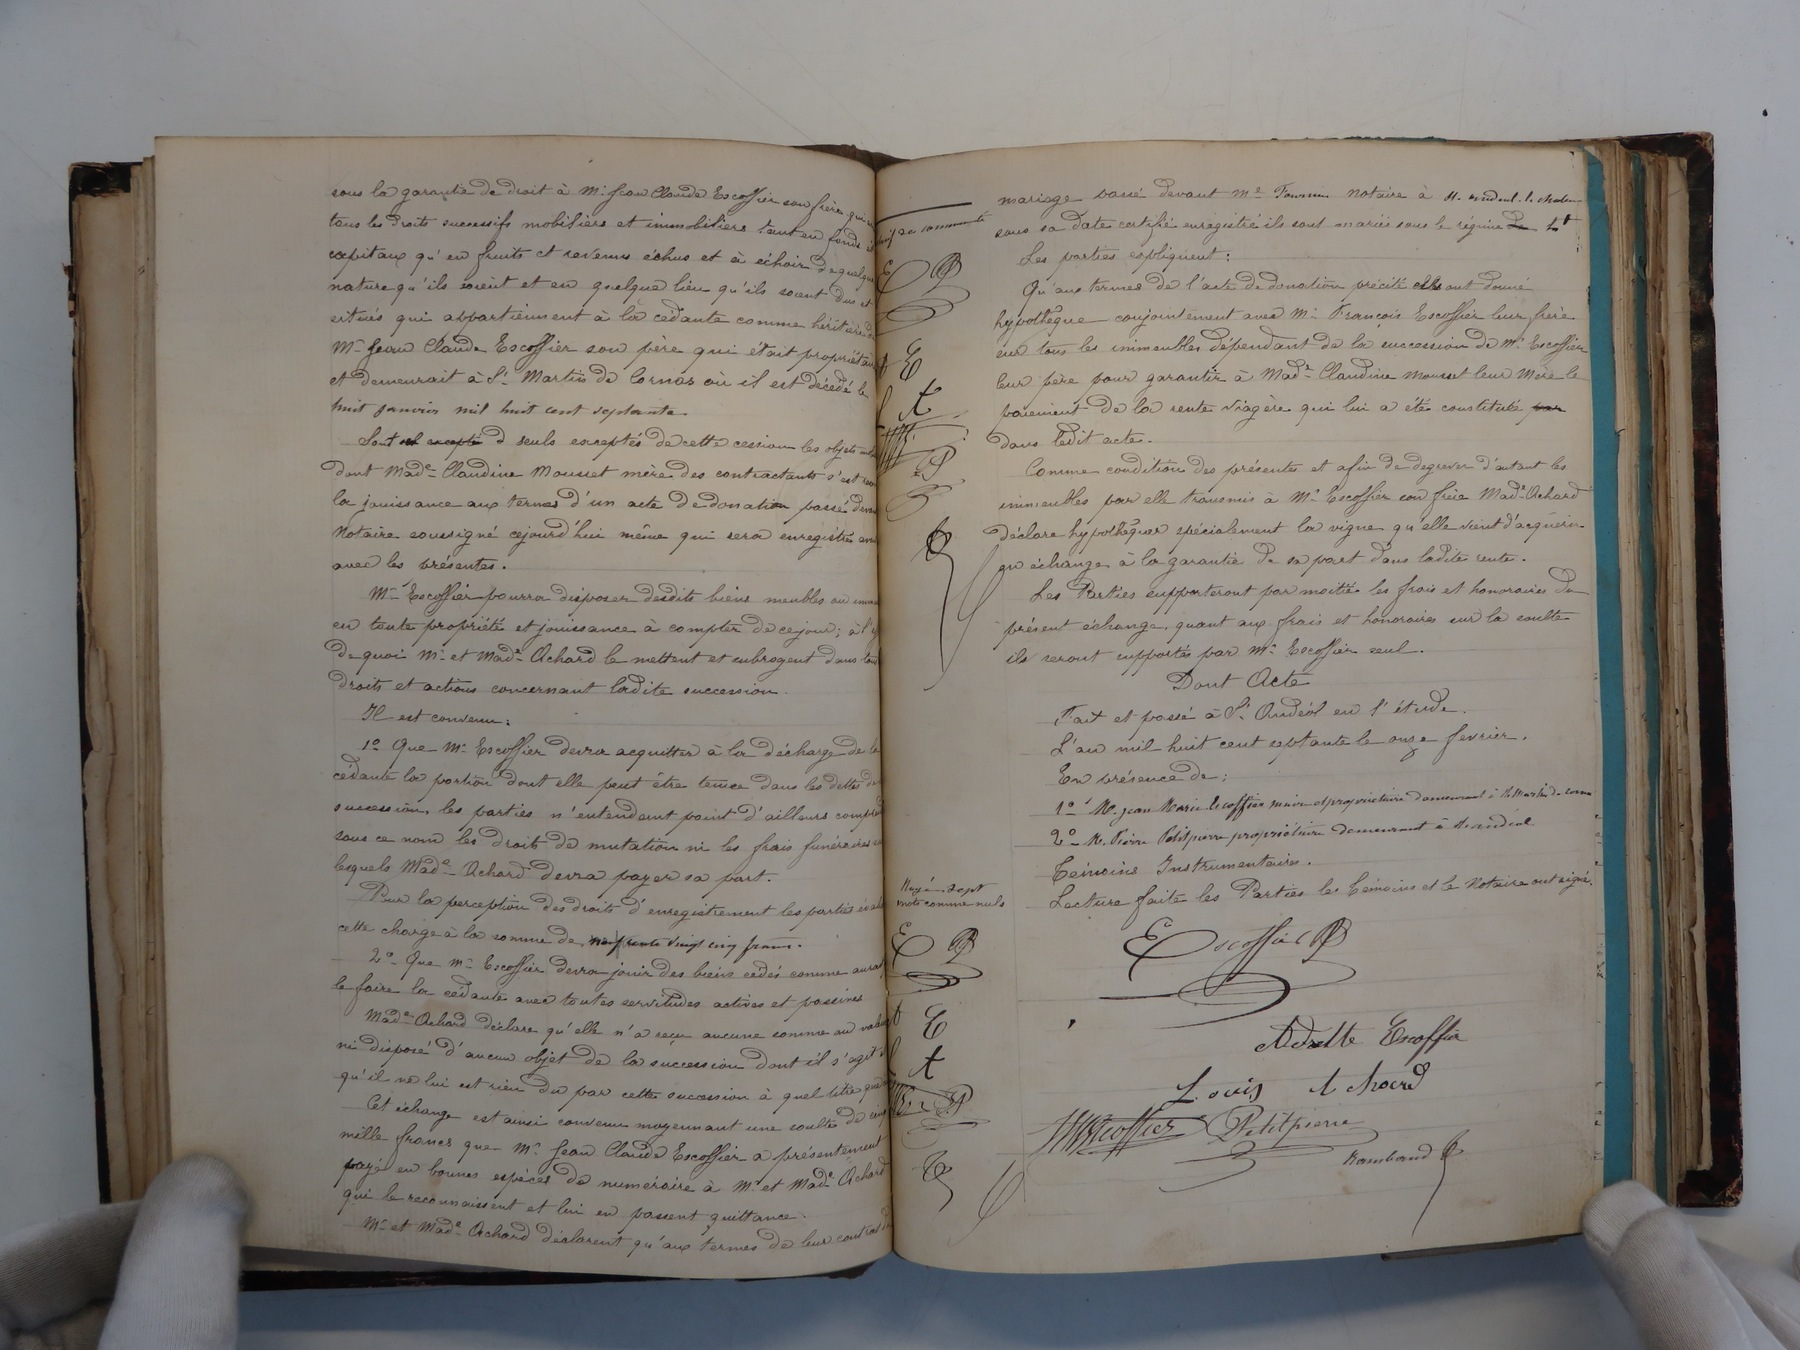 sous la garantie de droit à Mr Jean Claude Escoffier son frère qui
tous les droits successifs mobiliers et immobiliers tant en fonds et
capitaux qu'en fruits et revenus échus et à échoir de quelque
nature qu'ils soient et en quelque lieu qu'ils soient dus et
situés qui appartiennent à la cédante comme héritière de
Mr Jean Claude Escoffier son père qui était propriétaire
et demeurait à St Martin de Cornas où il est décédé le
huit janvier mil huit cent septante.
Sont seuls exceptés de cette cession les objets
dont Made Claudine Mousset mère des contractants s'est
la jouissance aux termes d'un acte de donation passé devant
Notaire soussigné cejourd'hui même qui sera enregistré
avec les présentes.
Mr Escoffier pourra disposer desdits biens meubles ou
en toute propriété et jouissance à compter de ce jour; à l'
de quoi Mr et Made Achard le mettent et subrogent dans
droits et actions concernant ladite succession.
Il est convenu:
1o Que Mr Escoffier devra acquitter à la décharge de la
cédante la portion dont elle peut être tenue dans les dettes de
succession, les parties n'entendant point d'ailleurs comprendre
sous ce nom les droits de mutation ni les frais funéraires
lesquels Made Achard devra payer sa part.
Pour la perception des droits d'enregistrement les parties
cette charge à la somme de vingt cinq francs.
2o Que Mr Escoffier devra jouir des biens cédés comme aurait
le faire la cédante avec toutes servitudes actives et passives
Made Achard déclare qu'elle n'a reçu aucune somme ou valeur
ni disposé d'aucun objet de la succession dont il s'agit
qu'il ne lui est rien du par cette succession à quel titre que
Cet échange est ainsi convenu moyennant une soulte de cinq
mille francs que Mr Jean Claude Escoffier a présentement
payé en bonnes espèces de numéraire à Mr et Made Achard
qui le reconnaissent et lui en passent quittance.
Mr et Made Achard déclarent qu'aux termes de leur contrat de
E P
E
A
P
Rayé sept
mots comme nuls
E P
E
A
P
mariage passé devant Me notaire à
sous sa date certifié enregistré ils sont mariés sous le régime
Les parties expliquent:
Qu'aux termes de l'acte de donation précité elles ont donné
hypothèque conjointement avec Mr François Escoffier leur frère
sur tous les immeubles dépendant de la succession de Mr Escoffier
leur père pour garantir à Made Claudine Mousset leur mère le
paiement de la rente viagère qui lui a été constitué par
dans ledit acte.
Comme condition des présentes et afin de degrever d'autant les
immeubles par elle transmis à Mr Escoffier son frère Made Achard
déclare hypothéquer spécialement la vigne qu'elle vient d'acquérir
en échange à la garantie de sa part dans ladite rente.
Les Parties supporteront par moitié les frais et honoraires du
présent échange, quant aux frais et honoraires sur la soulte
ils seront supportés par Mr Escoffier seul.
Dont Acte
Fait et passé à St Andéol en l'étude.
L'an mil huit cent septante le onze fevrier.
En présence de:
1o Mr. Jean Marie Escoffier maire et propriétaire demeurant à St Martin de Cornas
2o Mr. Pierre Petitpierre propriétaire demeurant à St Andéol
Témoins Instrumentaires.
Lecture faite les Parties les témoins et le Notaire ont signé.
Escoffier
Escoffier
Louis Achard
Escoffier Petitpierre
Rambaud